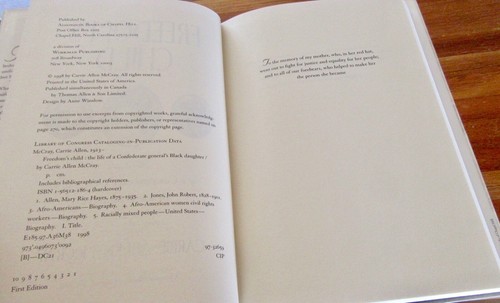 Published by
Algonquin Books of Chapel Hill
Post Office Box 2225
Chapel Hill, North Carolina 27515-2225
a division of
Workman Publishing
708 Broadway
New York, New York 10003
© 1998 by Carrie Allen McCray. All rights reserved.
Printed in the United States of America.
Published simultaneously in Canada
by Thomas Allen & Son Limited.
Design by Anne Winslow.
For permission to use excerpts from copyrighted works, grateful acknowledg-
ment is made to the copyright holders, publishers, or representatives named on
page 270, which constitutes an extension of the copyright page.
Library of Congress Cataloging-in-Publication Data
McCray, Carrie Allen, 1913–
Freedom's child : the life of a Confederate general's Black daughter /
by Carrie Allen McCray
p. cm.
Includes bibliographical references.
ISBN 1-56512-186-4 (hardcover)
1. Allen, Mary Rice Hayes, 1875–1935. 2. Jones, John Robert, 1828–1901.
3. Afro-Americans—Biography. 4. Afro-American women civil rights
workers—Biography. 5. Racially mixed people—United States—
Biography. I. Title.
E185.97.A36M38 1998
973'.0496073'0092
[B]—DC21 97-32651
CIP
10 9 8 7 6 5 4 3 2 1
First Edition
To the memory of my mother, who, in her red hat,
went out to fight for justice and equality for her people,
and to all of our forebears, who helped to make her
the person she became